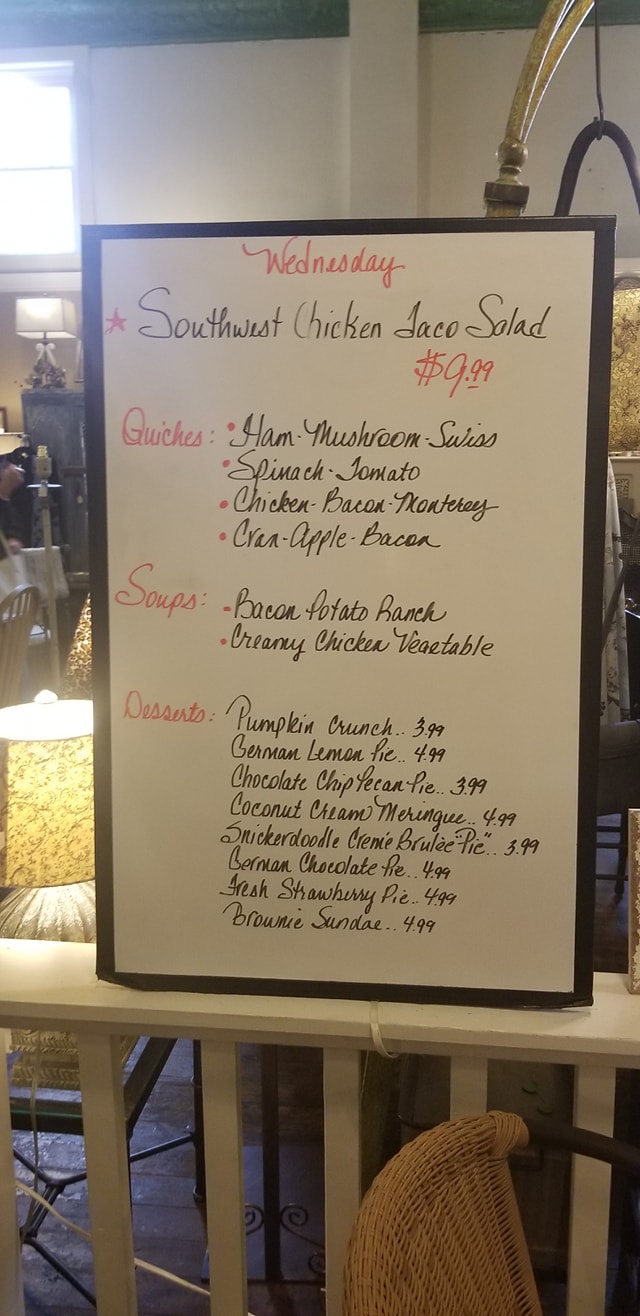 Wednesday
★ Southwest Chicken Taco Salad
$9.99
Quiches: • Ham-Mushroom-Swiss
• Spinach-Tomato
• Chicken-Bacon-Monterey
• Cran-Apple-Bacon
Soups: • Bacon Potato Ranch
• Creamy Chicken Vegetable
Desserts: Pumpkin Crunch.. 3.99
German Lemon Pie.. 4.99
Chocolate Chip Pecan Pie.. 3.99
Coconut Cream Meringue.. 4.99
Snickerdoodle Cremé Brulèe "Pie".. 3.99
German Chocolate Pie.. 4.99
Fresh Strawberry Pie.. 4.99
Brownie Sundae.. 4.99